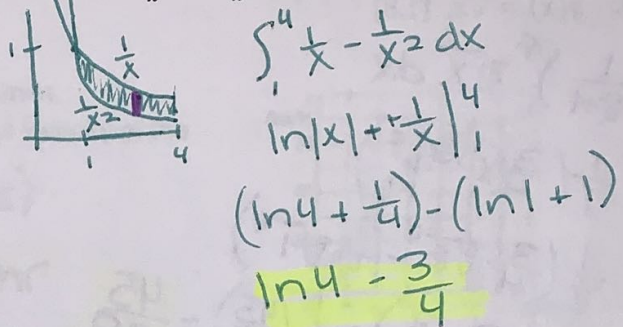 1
1/x
1/x²
1 4
∫₁⁴ 1/x - 1/x² dx
ln|x| + + 1/x |₁⁴
(ln4 + 1/4) - (ln1 + 1)
ln4 - 3/4